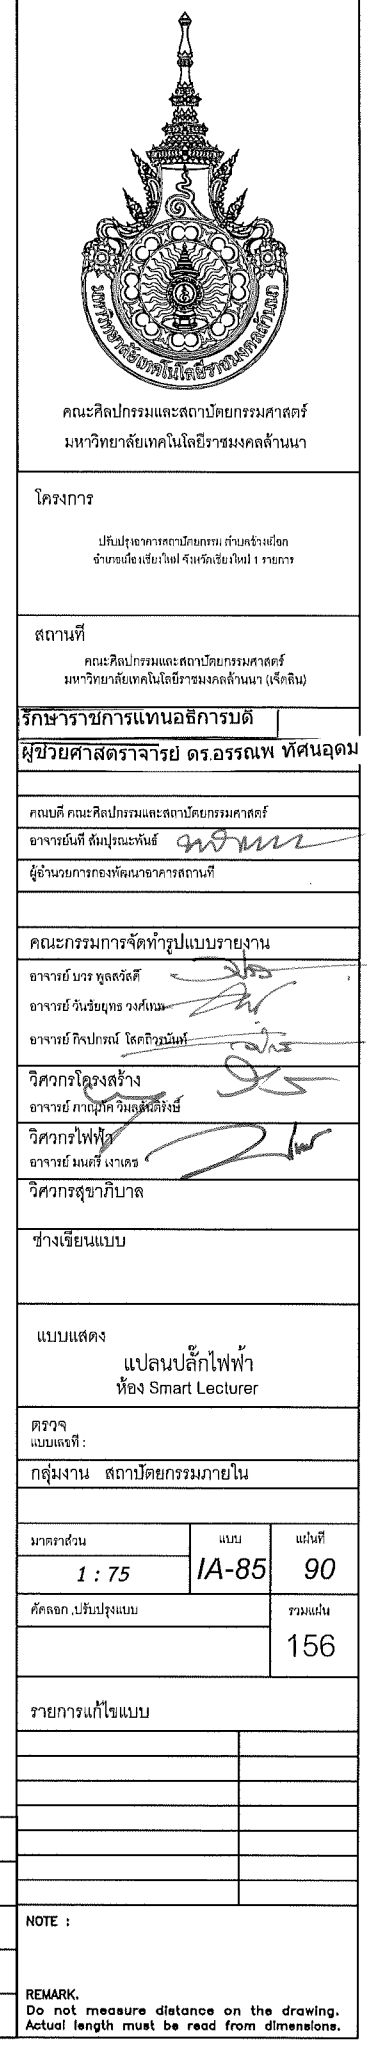 มหาวิทยาลัยเทคโนโลยีราชมงคลล้านนา
คณะศิลปกรรมและสถาปัตยกรรมศาสตร์
มหาวิทยาลัยเทคโนโลยีราชมงคลล้านนา
โครงการ
ปรับปรุงอาคารสถาปัตยกรรม ตำบลช้างเผือก
อำเภอเมืองเชียงใหม่ จังหวัดเชียงใหม่ 1 รายการ
สถานที่
คณะศิลปกรรมและสถาปัตยกรรมศาสตร์
มหาวิทยาลัยเทคโนโลยีราชมงคลล้านนา (เจ็ดลิน)
รักษาราชการแทนอธิการบดี
ผู้ช่วยศาสตราจารย์ ดร.อรรณพ ทัศนอุดม
คณบดี คณะศิลปกรรมและสถาปัตยกรรมศาสตร์
อาจารย์นที สัมปุรณะพันธ์
ผู้อำนวยการกองพัฒนาอาคารสถานที่
คณะกรรมการจัดทำรูปแบบรายงาน
อาจารย์ บวร พูลสวัสดิ์
อาจารย์ วันชัยยุทธ วงศ์เทพ
อาจารย์ กิจปกรณ์
วิศวกรโครงสร้าง
อาจารย์ ภาณุภัค วิมลสันติรังษี
วิศวกรไฟฟ้า
อาจารย์ มนตรี เงาเดช
วิศวกรสุขาภิบาล
ช่างเขียนแบบ
แบบแสดง
แปลนปลั๊กไฟฟ้า
ห้อง Smart Lecturer
ตรวจ
แบบเลขที่ :
กลุ่มงาน สถาปัตยกรรมภายใน
มาตราส่วน แบบ แผ่นที่
1 : 75 IA-85 90
คัดลอก ,ปรับปรุงแบบ รวมแผ่น
156
รายการแก้ไขแบบ
NOTE :
REMARK.
Do not measure distance on the drawing.
Actual length must be read from dimensions.